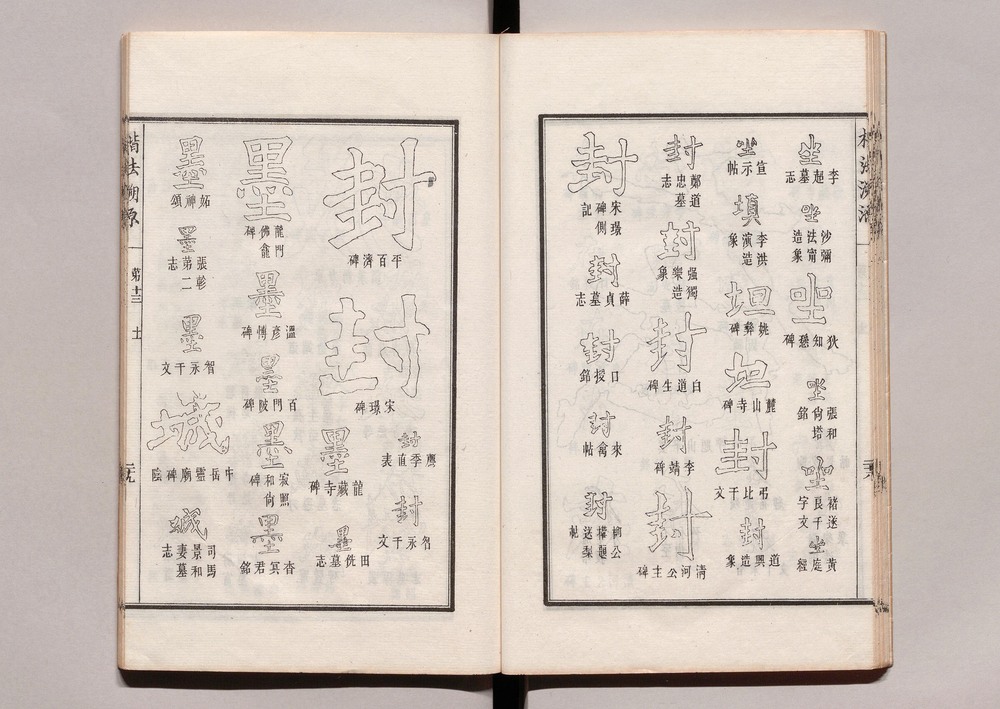 坐
李超墓志
坐
沙彌法甯造象
坐
狄知愻碑
坐
張和尙塔銘
坐
褚遂良千字文
坐
黃庭經
坐
宣示帖
填
李洪演造象
坦
姚彝碑
坦
麓山寺碑
封
弔比干文
封
道興造象
封
鄭道忠墓志
封
强獨樂造象
封
白道生碑
封
李靖碑
封
淸河公主碑
封
宋璟碑側記
封
薛貞墓志
封
口授銘
封
來禽帖
封
柳公權送梨題記
楷法溯原
第十三
土
封
平百濟碑
封
宋璟碑
封
薦季直表
封
智永千文
墨
龍藏寺碑
墨
田侁墓志
墨
龍門佛龕碑
墨
溫彥博碑
墨
百門陂碑
墨
寂照和尙碑
墨
杳冥君銘
墨
妬神頌
墨
張軫第二志
墨
智永千文
城
中岳靈廟碑陰
城
司馬景和妻墓志